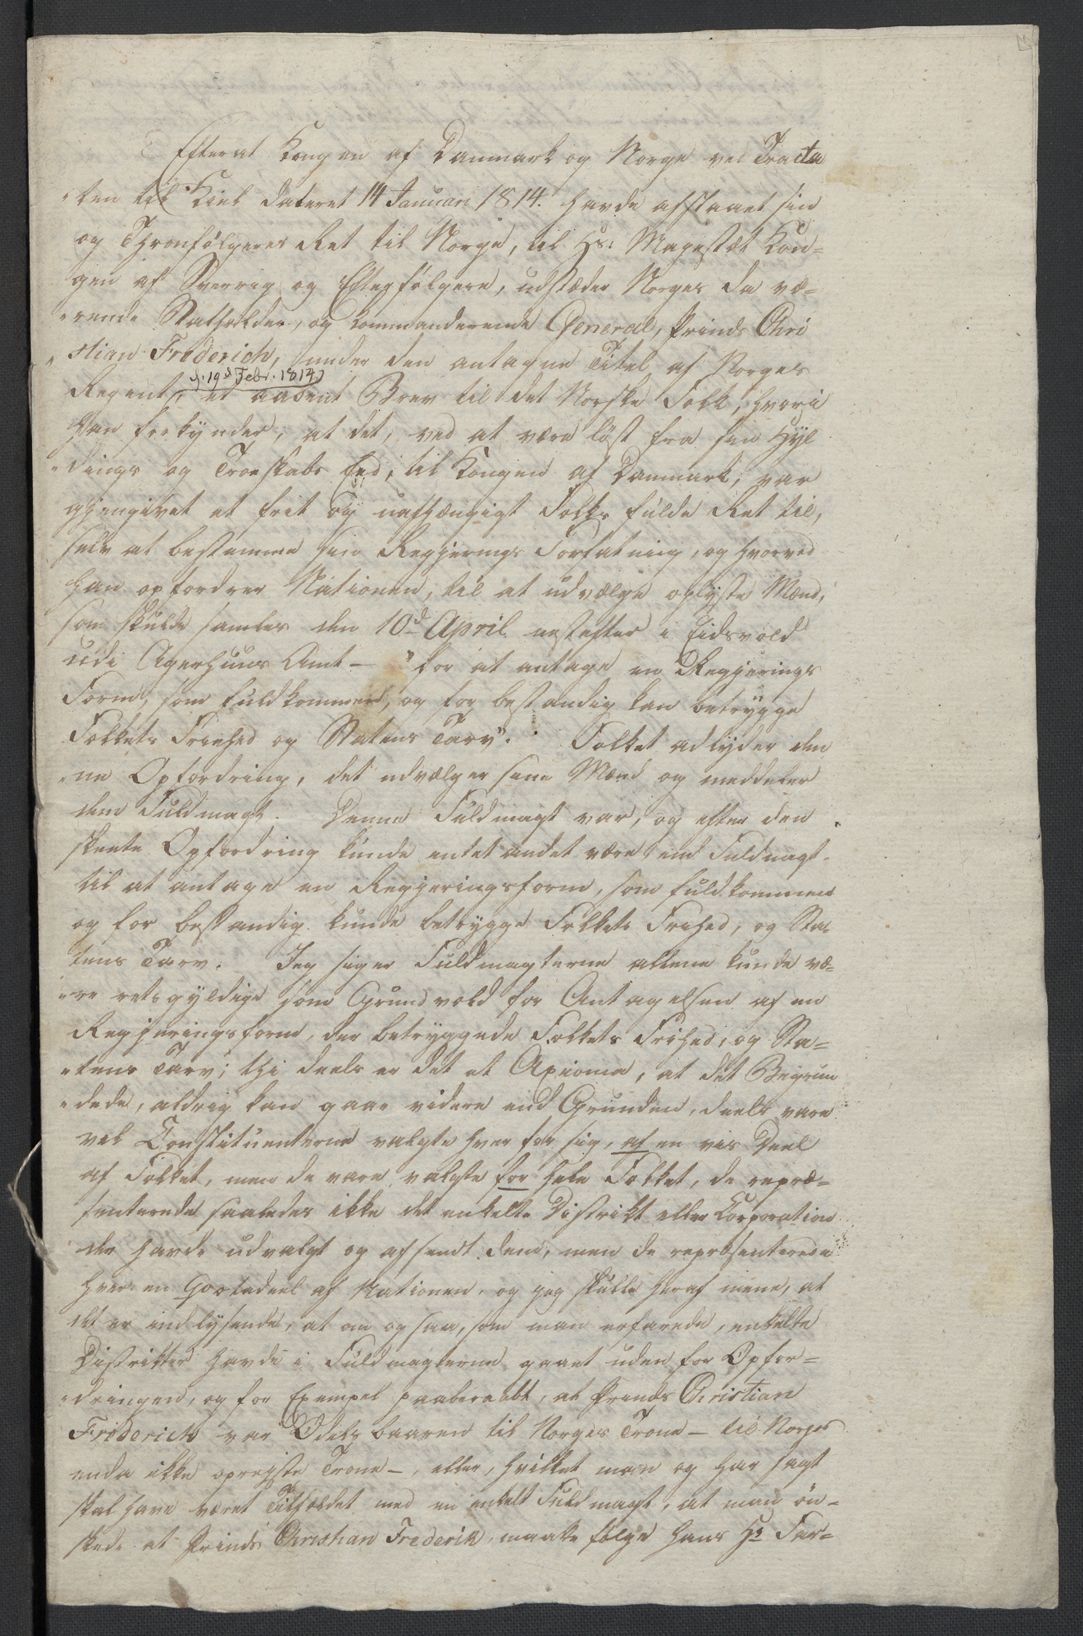 Efterat Kongen af Danmark og Norge ved Tracta
-ten til Kiel dateret 14 Januari 1814. havde afstaaet sin
og Thronfølgeres Ret til Norge, til Hs: Mayestæt Kon-
gen af Sverrig og Efterfølgere, udstæder Norges da væ-
-rende Statholder, og kommanderende General, Prinds Chri
-stian Frederich, under den antagne Titel af Norges
d. 19d Febr. 1814
Regent, et aabent Brev til det Norske Folk, hvori
han forkynder, at det, ved at være løst fra sin Hyl
-dings og Troeskabs Eed, til Kongen af Danmark, var
gjengivet et frit og uafhængigt Folks fulde Ret til,
selv at bestemme sin Regjerings Forfatning, og hvorved
han opfordrer Nationen, til at udvælge oplyste Mænd,
som skulde samles den 10d April nestefter i Eidsvold
udi Agerhuus Amt - "for at antage en Regjerings
Form, som fuldkommen, og for bestandig kan betrygge
Folkets Friehed og Statens Tarv". Folket adlyder den
-ne Opfordring, det udvælger sine Mænd og meddeler
dem Fuldmagt. Denne Fuldmagt var, og efter den
skeete Opfordring kunde intet andet være, end Fuldmagt
til at antage en Regjeringsform, som fuldkommen
og for bestandig kunde betrygge Folkets Frihed, og Sta
tens Tarv. Jeg siger Fuldmagterne allene kunde væ-
-re retsgyldige som Grundvold for Antagelsen af en
Regjeringsform, der betryggede Folkets Frihed, og Sta-
-tens Tarv; thi deels er det et Axioma, at det Begrun
-dede, aldrig kan gaae videre end Grunden, deels vare
vel Constituenterne valgte hver for sig, af en vis Deel
af Folket, men de vare valgte for hele Folket, de repræ-
senterede saaledes ikke det enkelte Distrikt eller Corporation
der havde udvalgt og afsendt dem, men de repræsenterede
hver en Qvotadeel af Nationen, og jeg skulle heraf mene, at
det er indlysende, at om og saa, som man erfarede, enkelte
Distrikter havde i Fuldmagterne gaaet uden for Opfor-
-dringen, og for Exempel paaberaabt, at Prinds Christian
Friderich var Odels baaren til Norges Trone - til Norges
enda ikke opreiste Trone -, eller, hvilket man og har sagt
skal have været Tilfældet med en enkelt Fuldmagt, at man øn-
skede at Prinds Christian Frederik maatte følge Hans Hr Far-